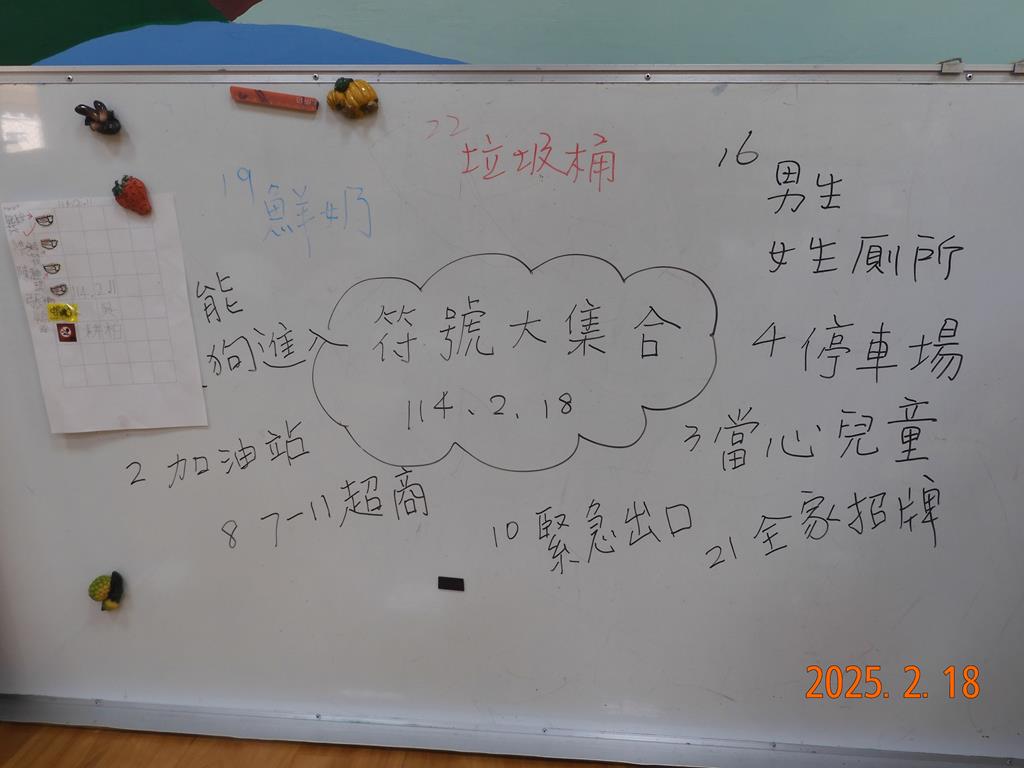 22 垃圾桶
19 鮮奶
16 男生
女生廁所
能
狗進入
符號大集合
114.2.18
4 停車場
3 當心兒童
2 加油站
8 7-11超商
10 緊急出口
21 全家招牌
114.2.11
2025. 2. 18